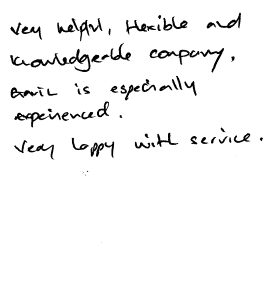 Very helpful, flexible and
knowledgeable company,
is especially
experienced.
Very happy with service.